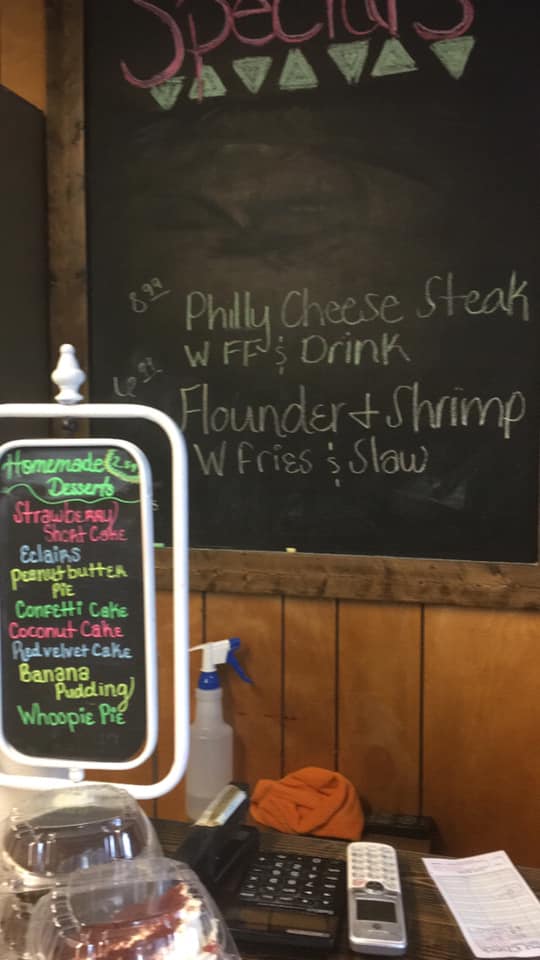 Specials
8.99 Philly Cheese Steak
W FF & Drink
Flounder + Shrimp
W Fries & Slaw
Homemade
Desserts
Strawberry
Short Cake
Eclairs
Peanut butter
Pie
Confetti Cake
Coconut Cake
Red velvet Cake
Banana
Pudding
Whoopie Pie